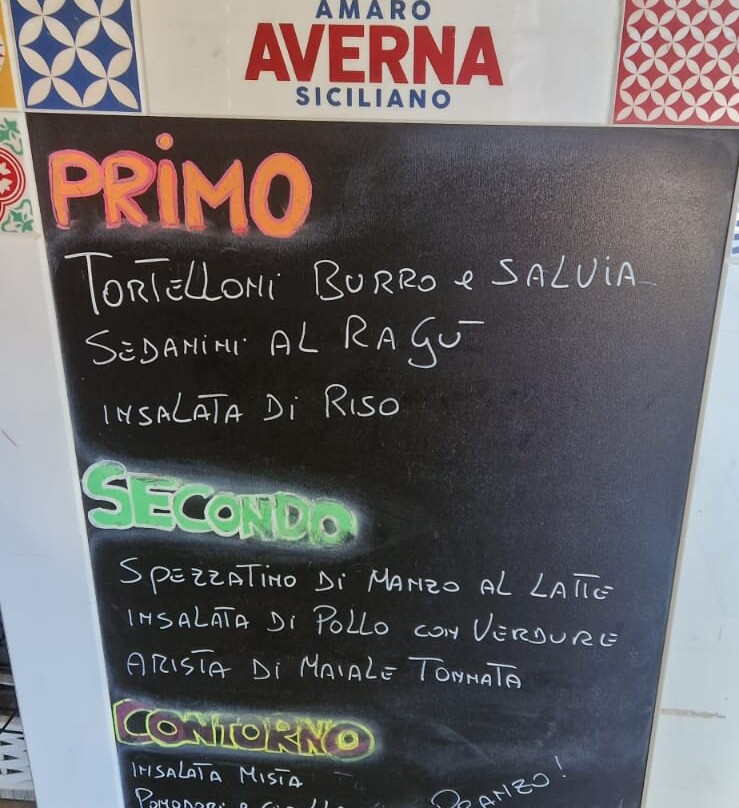 AMARO
AVERNA
SICILIANO
PRiMO
TORTELLONi BURRO e SALVIA
SEDANINI AL RAGÙ
INSALATA Di RISO
SECONDO
SPEZZATINO Di MANZO AL LATTE
INSALATA Di POLLO CON VERDURE
ARISTA Di MAIALE TONNATA
CONTORNO
INSALATA MISTA
POMODORI e
PRANZO!